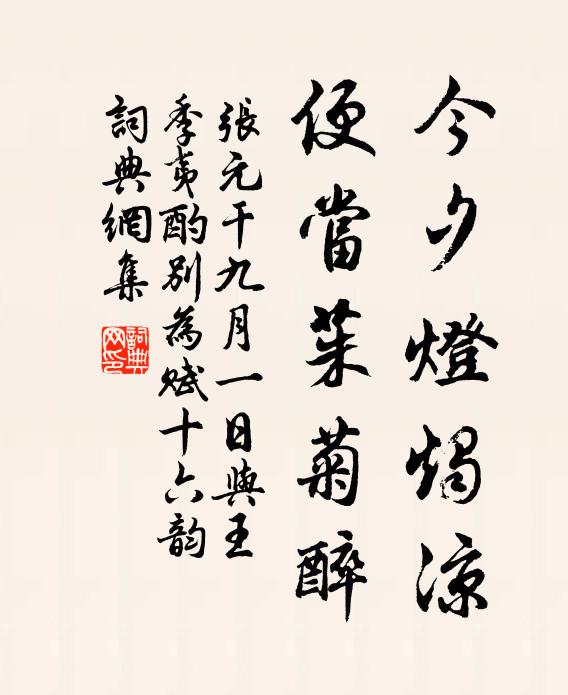 今夕燈燭涼
便當茱菊醉
張元干九月一日與王
季夷酌別為賦十六韵
詞典網集
詞典网印